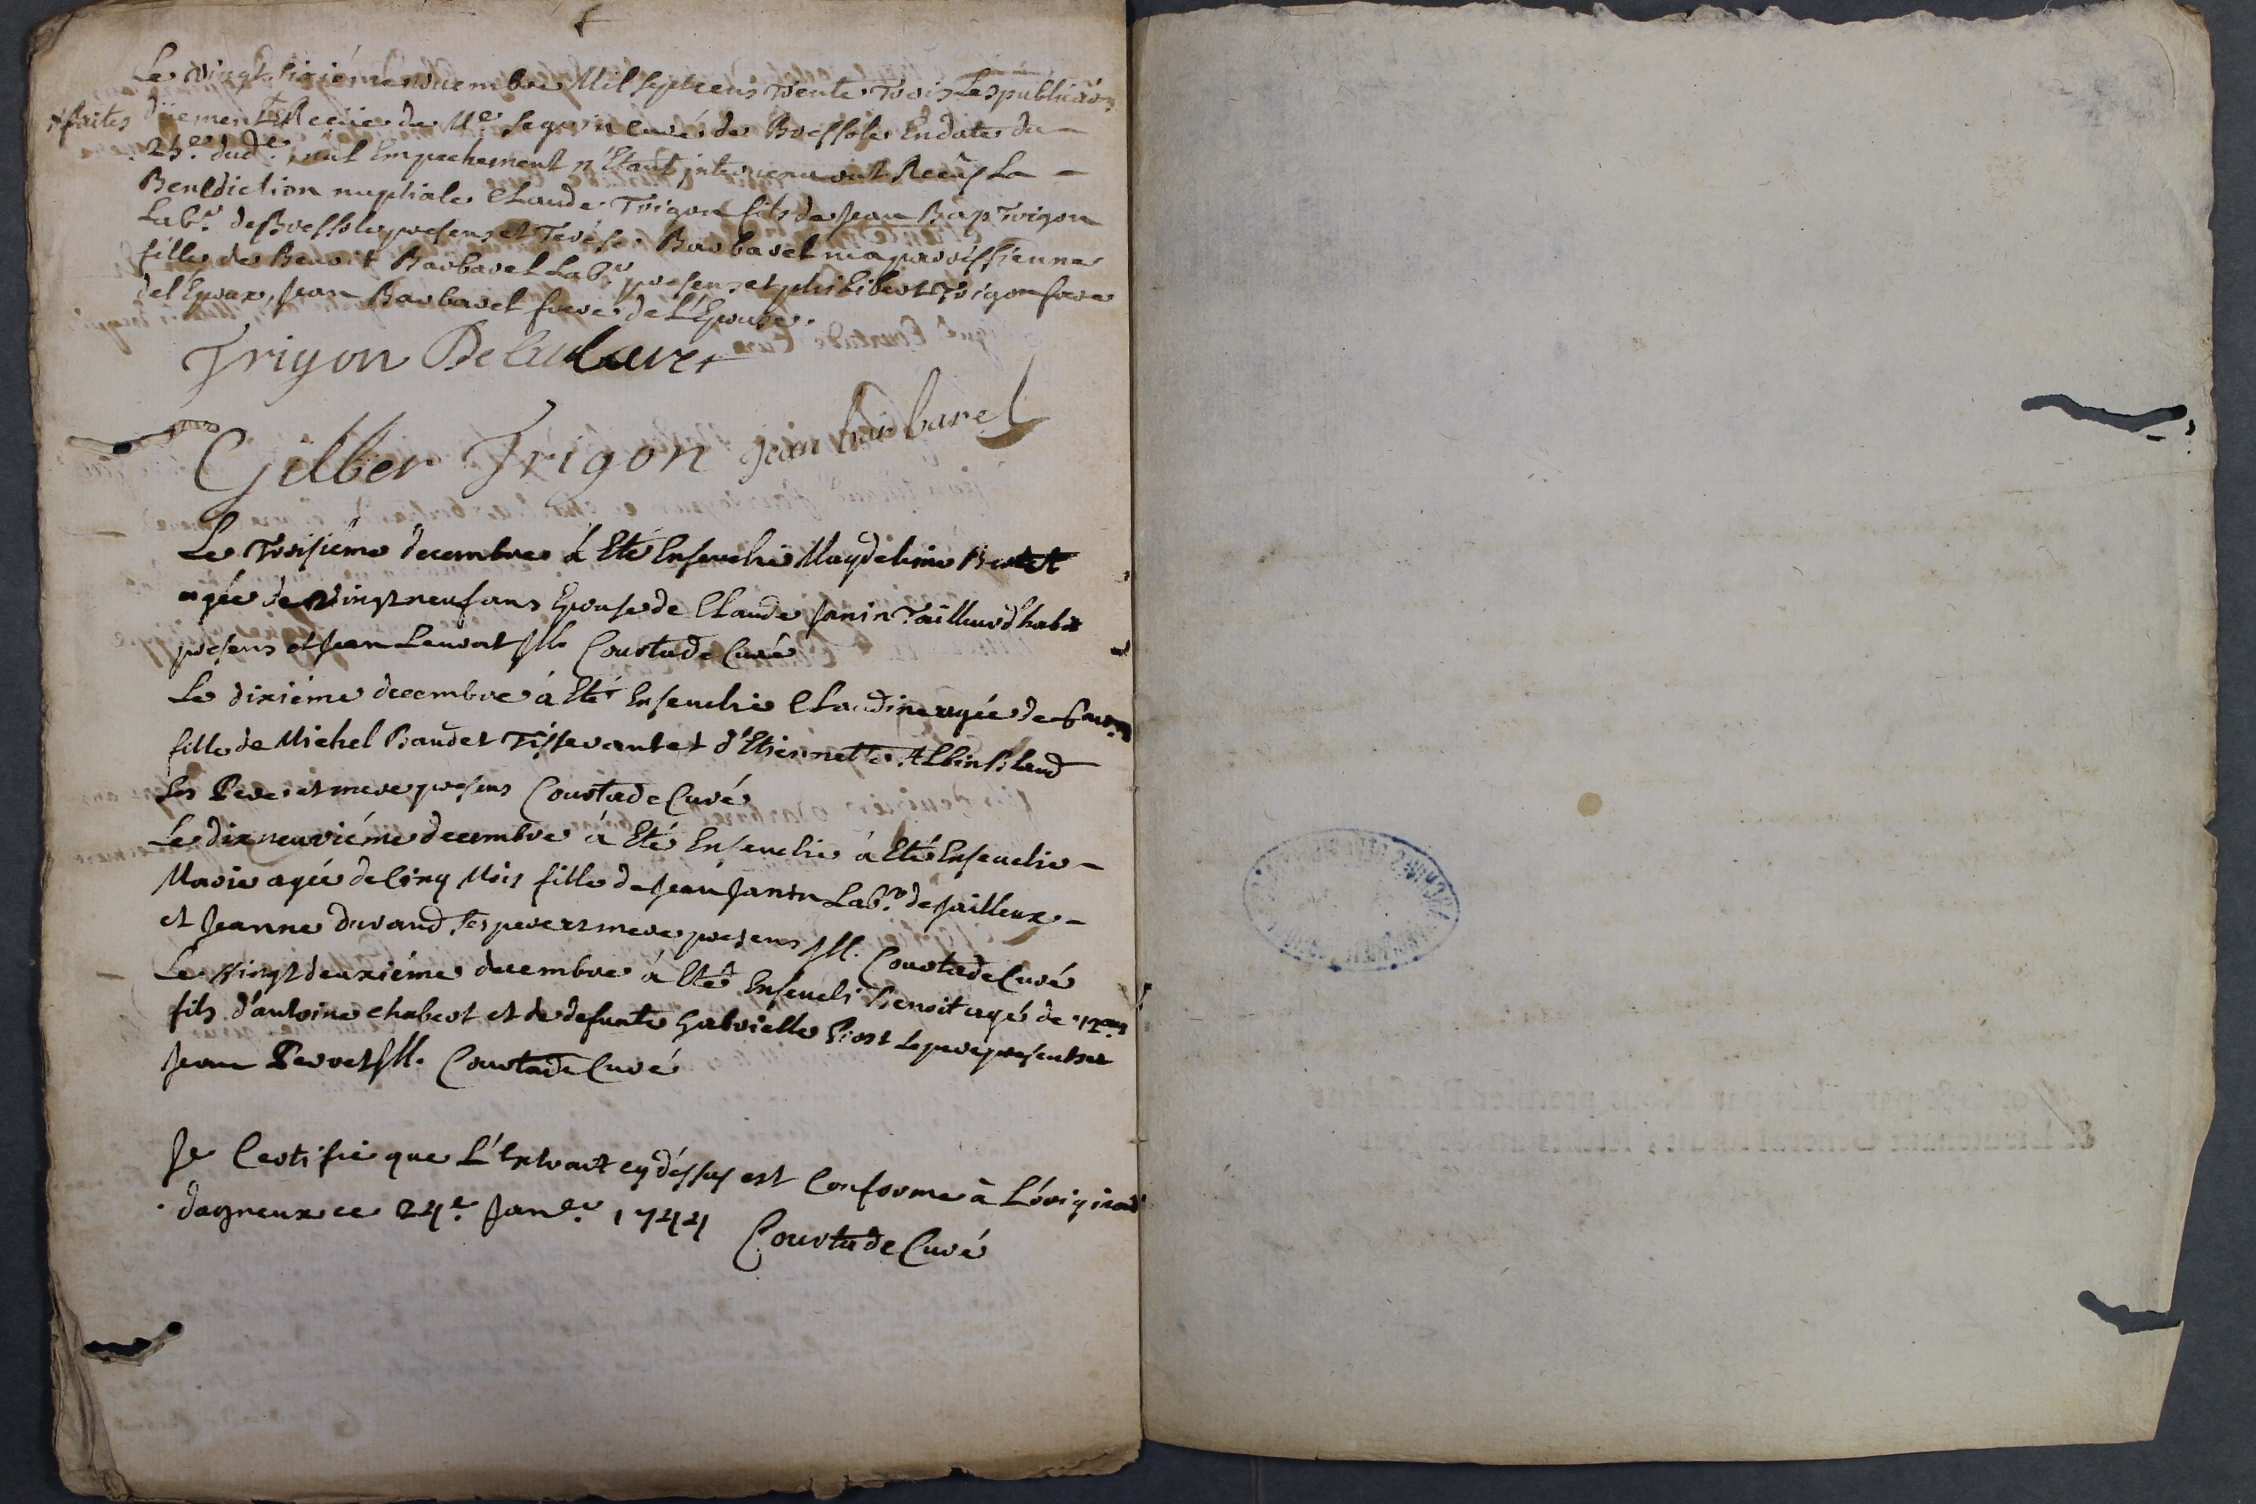 Le vingt sixiéme novembre Mil sept cens trente trois Les publicãõns
+ faites düement + Receüe de Mre Seguin Curé de Bressolle En date du
25e. dud.e nul Empechement n'Etant intervenu ont Reçûs La
Benediction nuptiale Claude Trigon fils de Jean Bap Trigon
Labr. de Bressolle presens et Terése Barbaret ma paroissienne
fille de Benoit Barbaret Labr. presens et philibert Trigon frere
del Epoux, Jean Barbaret frere de L'Epouse.
Trigon
Gilber Trigon jean barbarel
Le Troisiéme decembre à Eté Ensevelie Magdeleine
agée de vingt neuf ans Epouse de Claude Janin Tailleur d'habit
presens et Jean ill. Courtade Curé
Le dixiéme decembre à Eté Ensevelie Claudine agée de 6
fille de Michel Baudet Tisserant et d'Etiennette Albin Bland
Les Pere et mere presens Courtade Curé
Le dix neuviéme decembre à Eté Ensevelie à Eté Ensevelie
Marie agée de Cinq Mois fille de Jean Janin Labr. de Jailleux
et Jeanne durand, les pere et mere presens ill. Courtade Curé
Le Vingt deuxiéme decembre à Eté Enseveli Benoit agé de 12 ans
fils d'antoine chabert et de defunte Gabrielle le pere present et
Jean Perret ill. Courtade Curé
Je Certifie que L'Extrait cy déssus est Conforme à L'original
dagneux ce 24e. Janer. 1744 Courtade Curé